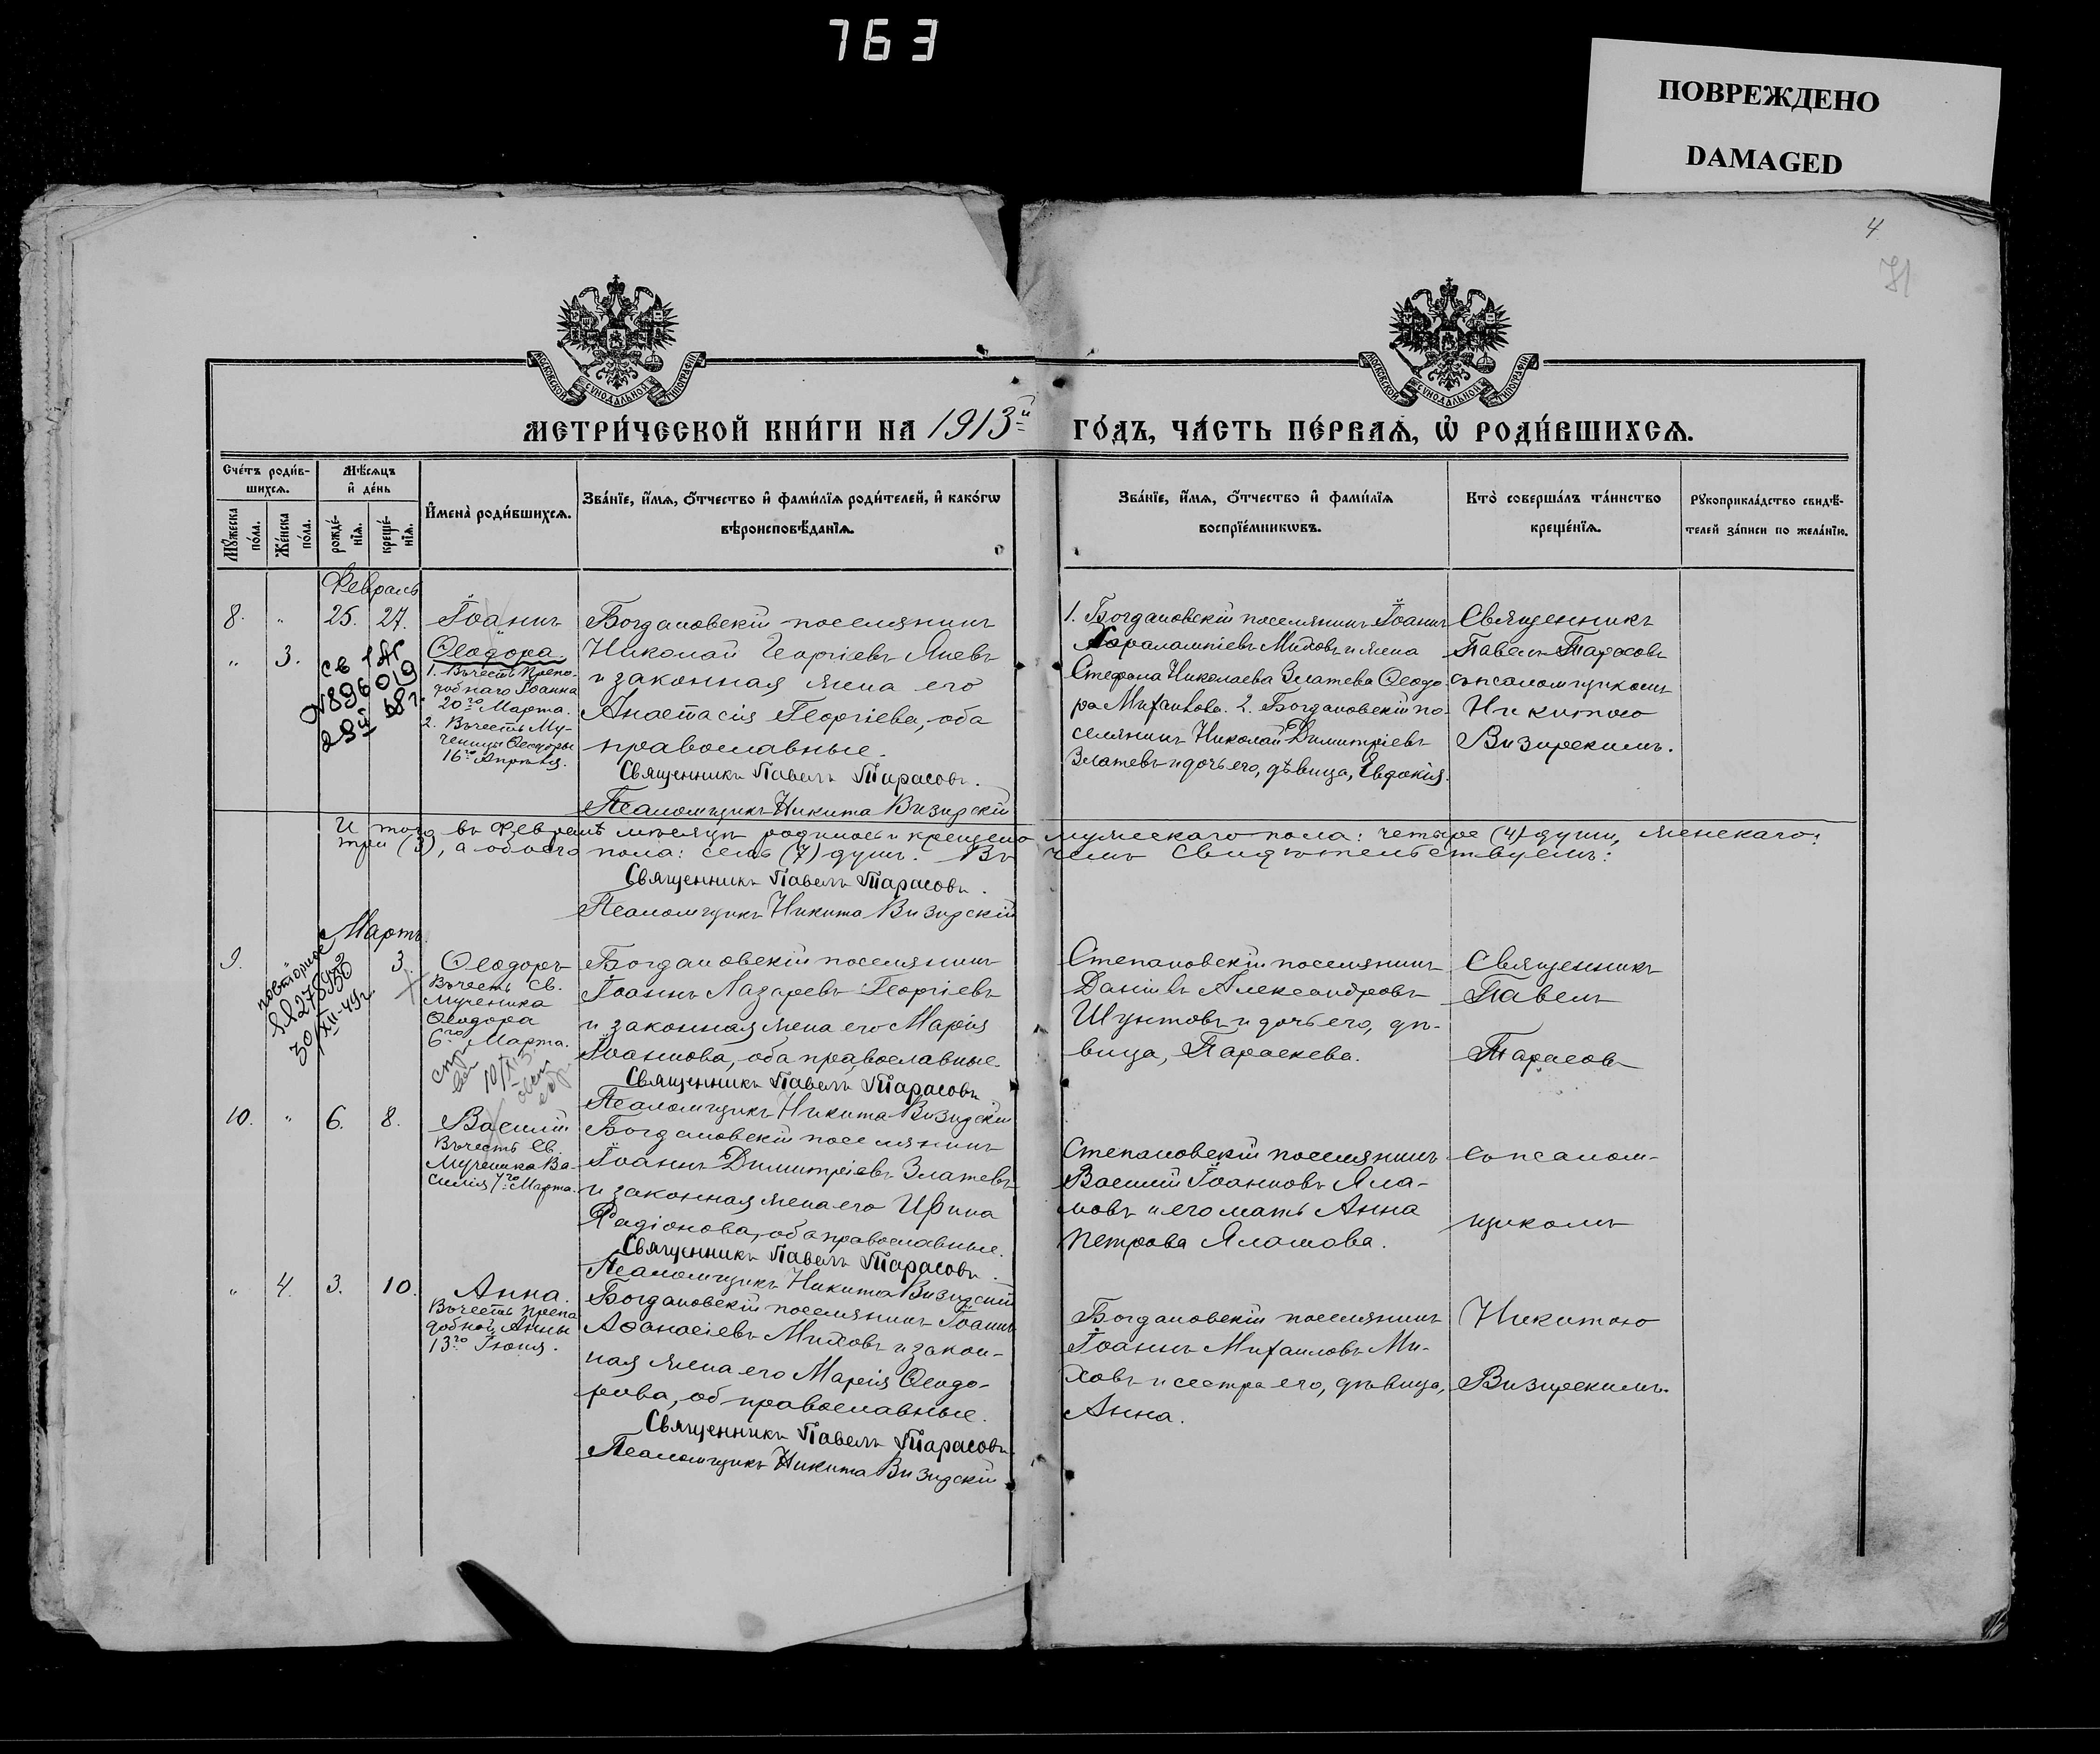 763
ПОВРЕЖДЕНО
DAMAGED
4
71
МОСКОВСКОЙ СѴНОДАЛЬНОЙ ТИПОГРАФІИ
МОСКОВСКОЙ СѴНОДАЛЬНОЙ ТИПОГРАФІИ
МЕТРИ́ЧЕСКОЙ КНИ́ГИ НА 1913й ГО́ДЪ, ЧА́СТЬ ПЕ́РВАѦ, Ѡ҆ РОДИ́ВШИХСѦ.
Сче́тъ роди́в-
шихсѧ.
Мѣ́сѧцъ
и҆ де́нь
Мꙋ́жеска по́ла.
Же́нска по́ла.
рожде́-
нїѧ.
креще́-
нїѧ.
И҆мена̀ роди́вшихсѧ.
Зва́нїе, и҆́мѧ, ѻ҆́тчество и҆ фами́лїѧ роди́телей, и҆ како́гѡ
вѣроисповѣ́данїѧ.
Зва́нїе, и҆́мѧ, ѻ҆́тчество и҆ фами́лїѧ
воспрїе́мникѡвъ.
Кто̀ соверша́лъ та́инство
креще́нїѧ.
Рꙋкоприкла́дство свидѣ́-
телей за́писи по жела́нїю.
Февраль
8. " 25. 27. Іоаннъ
" 3. Ѳеодора.
1. Въ честь Препо-
добнаго Іоанна
20го Марта.
2. Въ честь Му-
ченицы Ѳеодоры
16го Апрѣля.
Богдановскій поселянинъ
Николай Георгіевъ Яневъ
и законная жена его
Анастасія Георгіева, оба
православные.
Священникъ Павелъ Тарасовъ.
Псаломщикъ Никита Визирскій
1. Богдановскій поселянинъ Іоаннъ
Харалампіевъ Миховъ и жена
Стефана Николаева Златева Ѳеодо-
ра Михайлова. 2. Богдановскій по-
селянинъ Николай Димитріевъ
Златевъ и дочь его, дѣвица, Евдокія.
Священникъ
Павелъ Тарасовъ
съ псаломщикомъ
Никитою
Визирскимъ.
Итого въ Февралѣ мѣсяцѣ родилось и крещено мужескаго пола: четыре (4) души, женскаго:
три (3), а обоего пола: семь (7) душъ. Въ чемъ свидѣтельствуемъ:
Священникъ Павелъ Тарасовъ.
Псаломщикъ Никита Визирскій
Мартъ.
9. 3. Ѳеодоръ
Въ честь Св.
Мученика
Ѳеодора
6го Марта.
повторное
30/XII-49г.
Богдановскій поселянинъ
Іоаннъ Лазаревъ Георгіевъ
и законная жена его Марія
Іоаннова, оба православные.
Священникъ Павелъ Тарасовъ
Псаломщикъ Никита Визирскій
Степановскій поселянинъ
Даніилъ Александровъ
Шунтовъ и дочь его, дѣ-
вица, Параскева.
Священникъ
Павелъ
Тарасовъ
10. " 6. 8. Василій
Въ честь Св.
Мученика Ва-
силія 7го Марта.
Богдановскій поселянинъ
Іоаннъ Димитріевъ Златевъ
и законная жена его Ирина
Радіонова, оба православные.
Священникъ Павелъ Тарасовъ.
Псаломщикъ Никита Визирскій
Степановскій поселянинъ
Василій Іоанновъ Яла-
мовъ и его мать Анна
Петрова Яламова.
съ псалом-
щикомъ
" 4. 3. 10. Анна.
Въ честь Препо
добной Анны
13го Іюня.
Богдановскій поселянинъ Іоаннъ
Аѳанасіевъ Миховъ и закон-
ная жена его Марія Ѳеодо-
рова, об православные.
Священникъ Павелъ Тарасовъ
Псаломщикъ Никита Визирскій
Богдановскій поселянинъ
Іоаннъ Михаиловъ Ми-
ховъ и сестра его, дѣвица,
Анна.
Никитою
Визирскимъ.